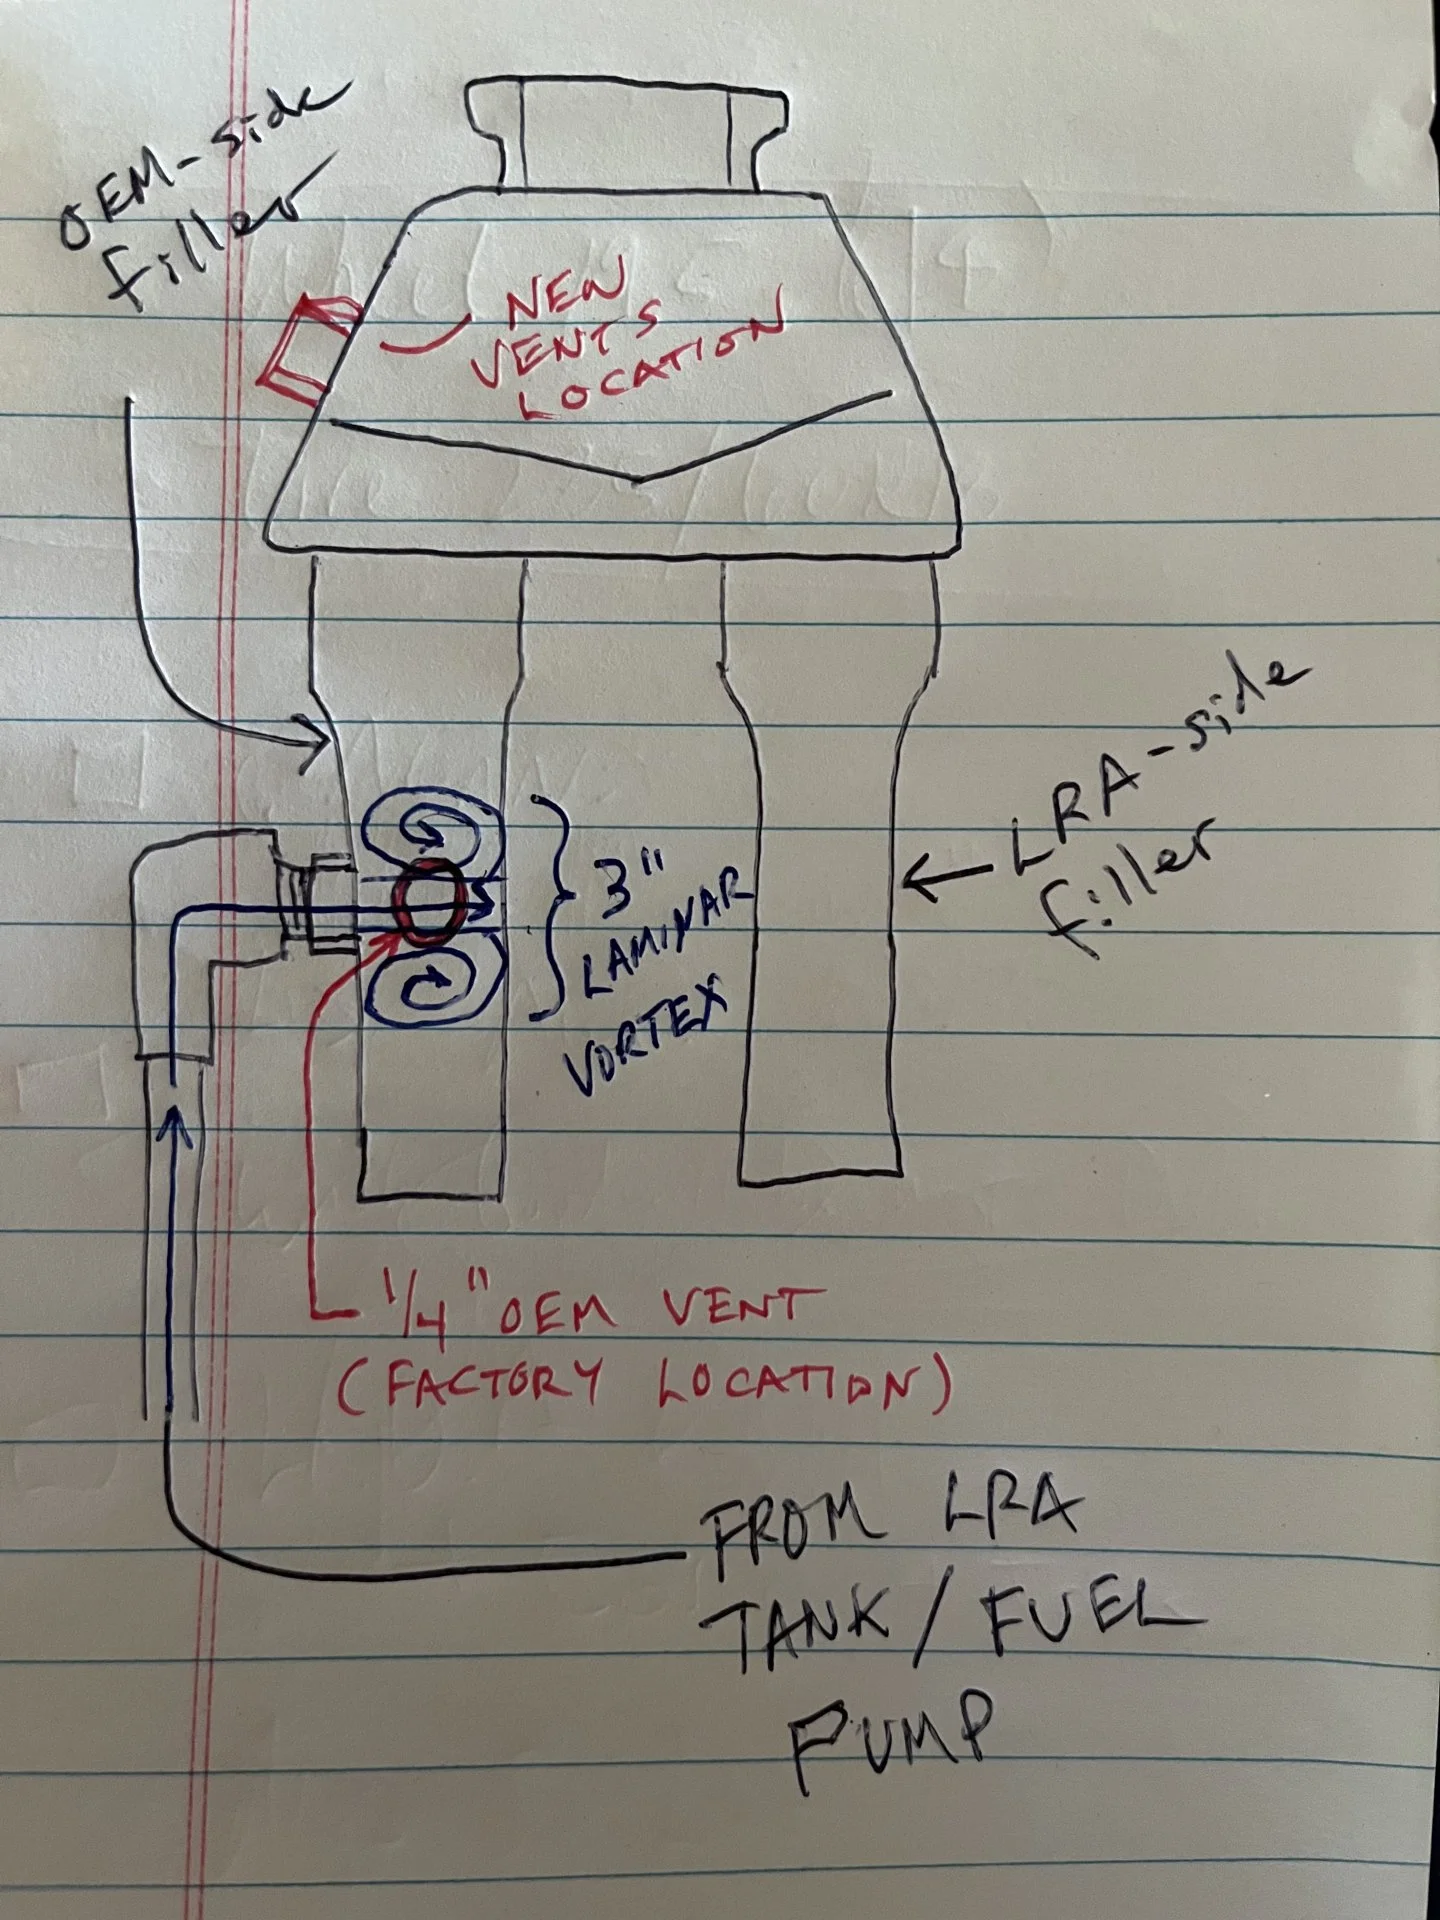 OEM-side
filler
NEW
VENTS
LOCATION
LRA-side
filler
3"
LAMINAR
VORTEX
1/4" OEM VENT
(FACTORY LOCATION)
FROM LRA
TANK/FUEL
PUMP